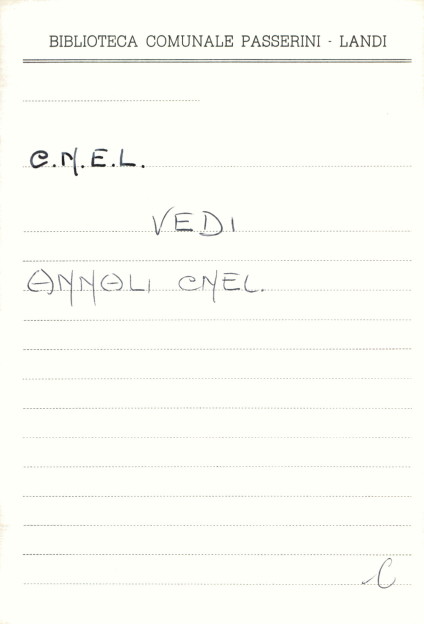 BIBLIOTECA COMUNALE PASSERINI - LANDI
C.N.E.L.
VEDI
ANNALI CNEL.
C